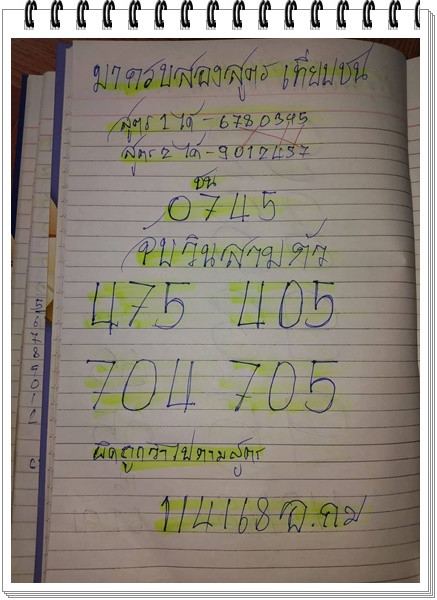 มาครบสองสูตร เทียบชน
สูตร 1 ได้ - 6780345
สูตร 2 ได้ - 9012437
ชน
0745
จับวินสามตัว
475 405
704 705
ผิดถูกว่าไปตามสูตร